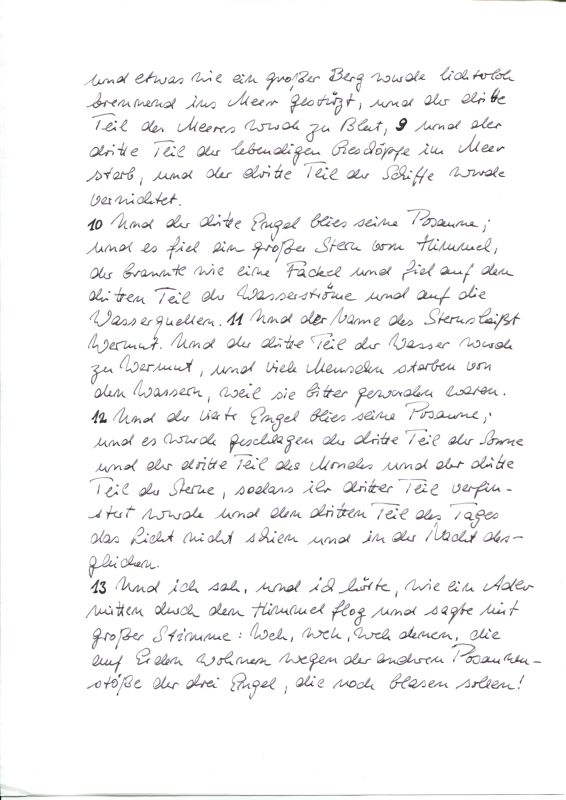 und etwas wie ein großer Berg wurde lichterloh
brennend ins Meer gestürzt, und der dritte
Teil des Meeres wurde zu Blut, 9 und der
dritte Teil der lebendigen Geschöpfe im Meer
starb, und der dritte Teil der Schiffe wurde
vernichtet.
10 Und der dritte Engel blies seine Posaune;
und es fiel ein großer Stern vom Himmel,
der brannte wie eine Fackel und fiel auf den
dritten Teil der Wasserströme und auf die
Wasserquellen. 11 Und der Name des Sterns heißt
Wermut. Und der dritte Teil der Wasser wurde
zu Wermut, und viele Menschen starben von
den Wassern, weil sie bitter geworden waren.
12 Und der vierte Engel blies seine Posaune;
und es wurde geschlagen der dritte Teil der Sonne
und der dritte Teil des Mondes und der dritte
Teil der Sterne, sodass ihr dritter Teil verfin-
stert wurde und den dritten Teil des Tages
das Licht nicht schien und in der Nacht des-
gleichen.
13 Und ich sah, und ich hörte, wie ein Adler
mitten durch den Himmel flog und sagte mit
großer Stimme: Weh, weh, weh denen, die
auf Erden wohnen wegen der anderen Posaunen-
stöße der drei Engel, die noch blasen sollen!